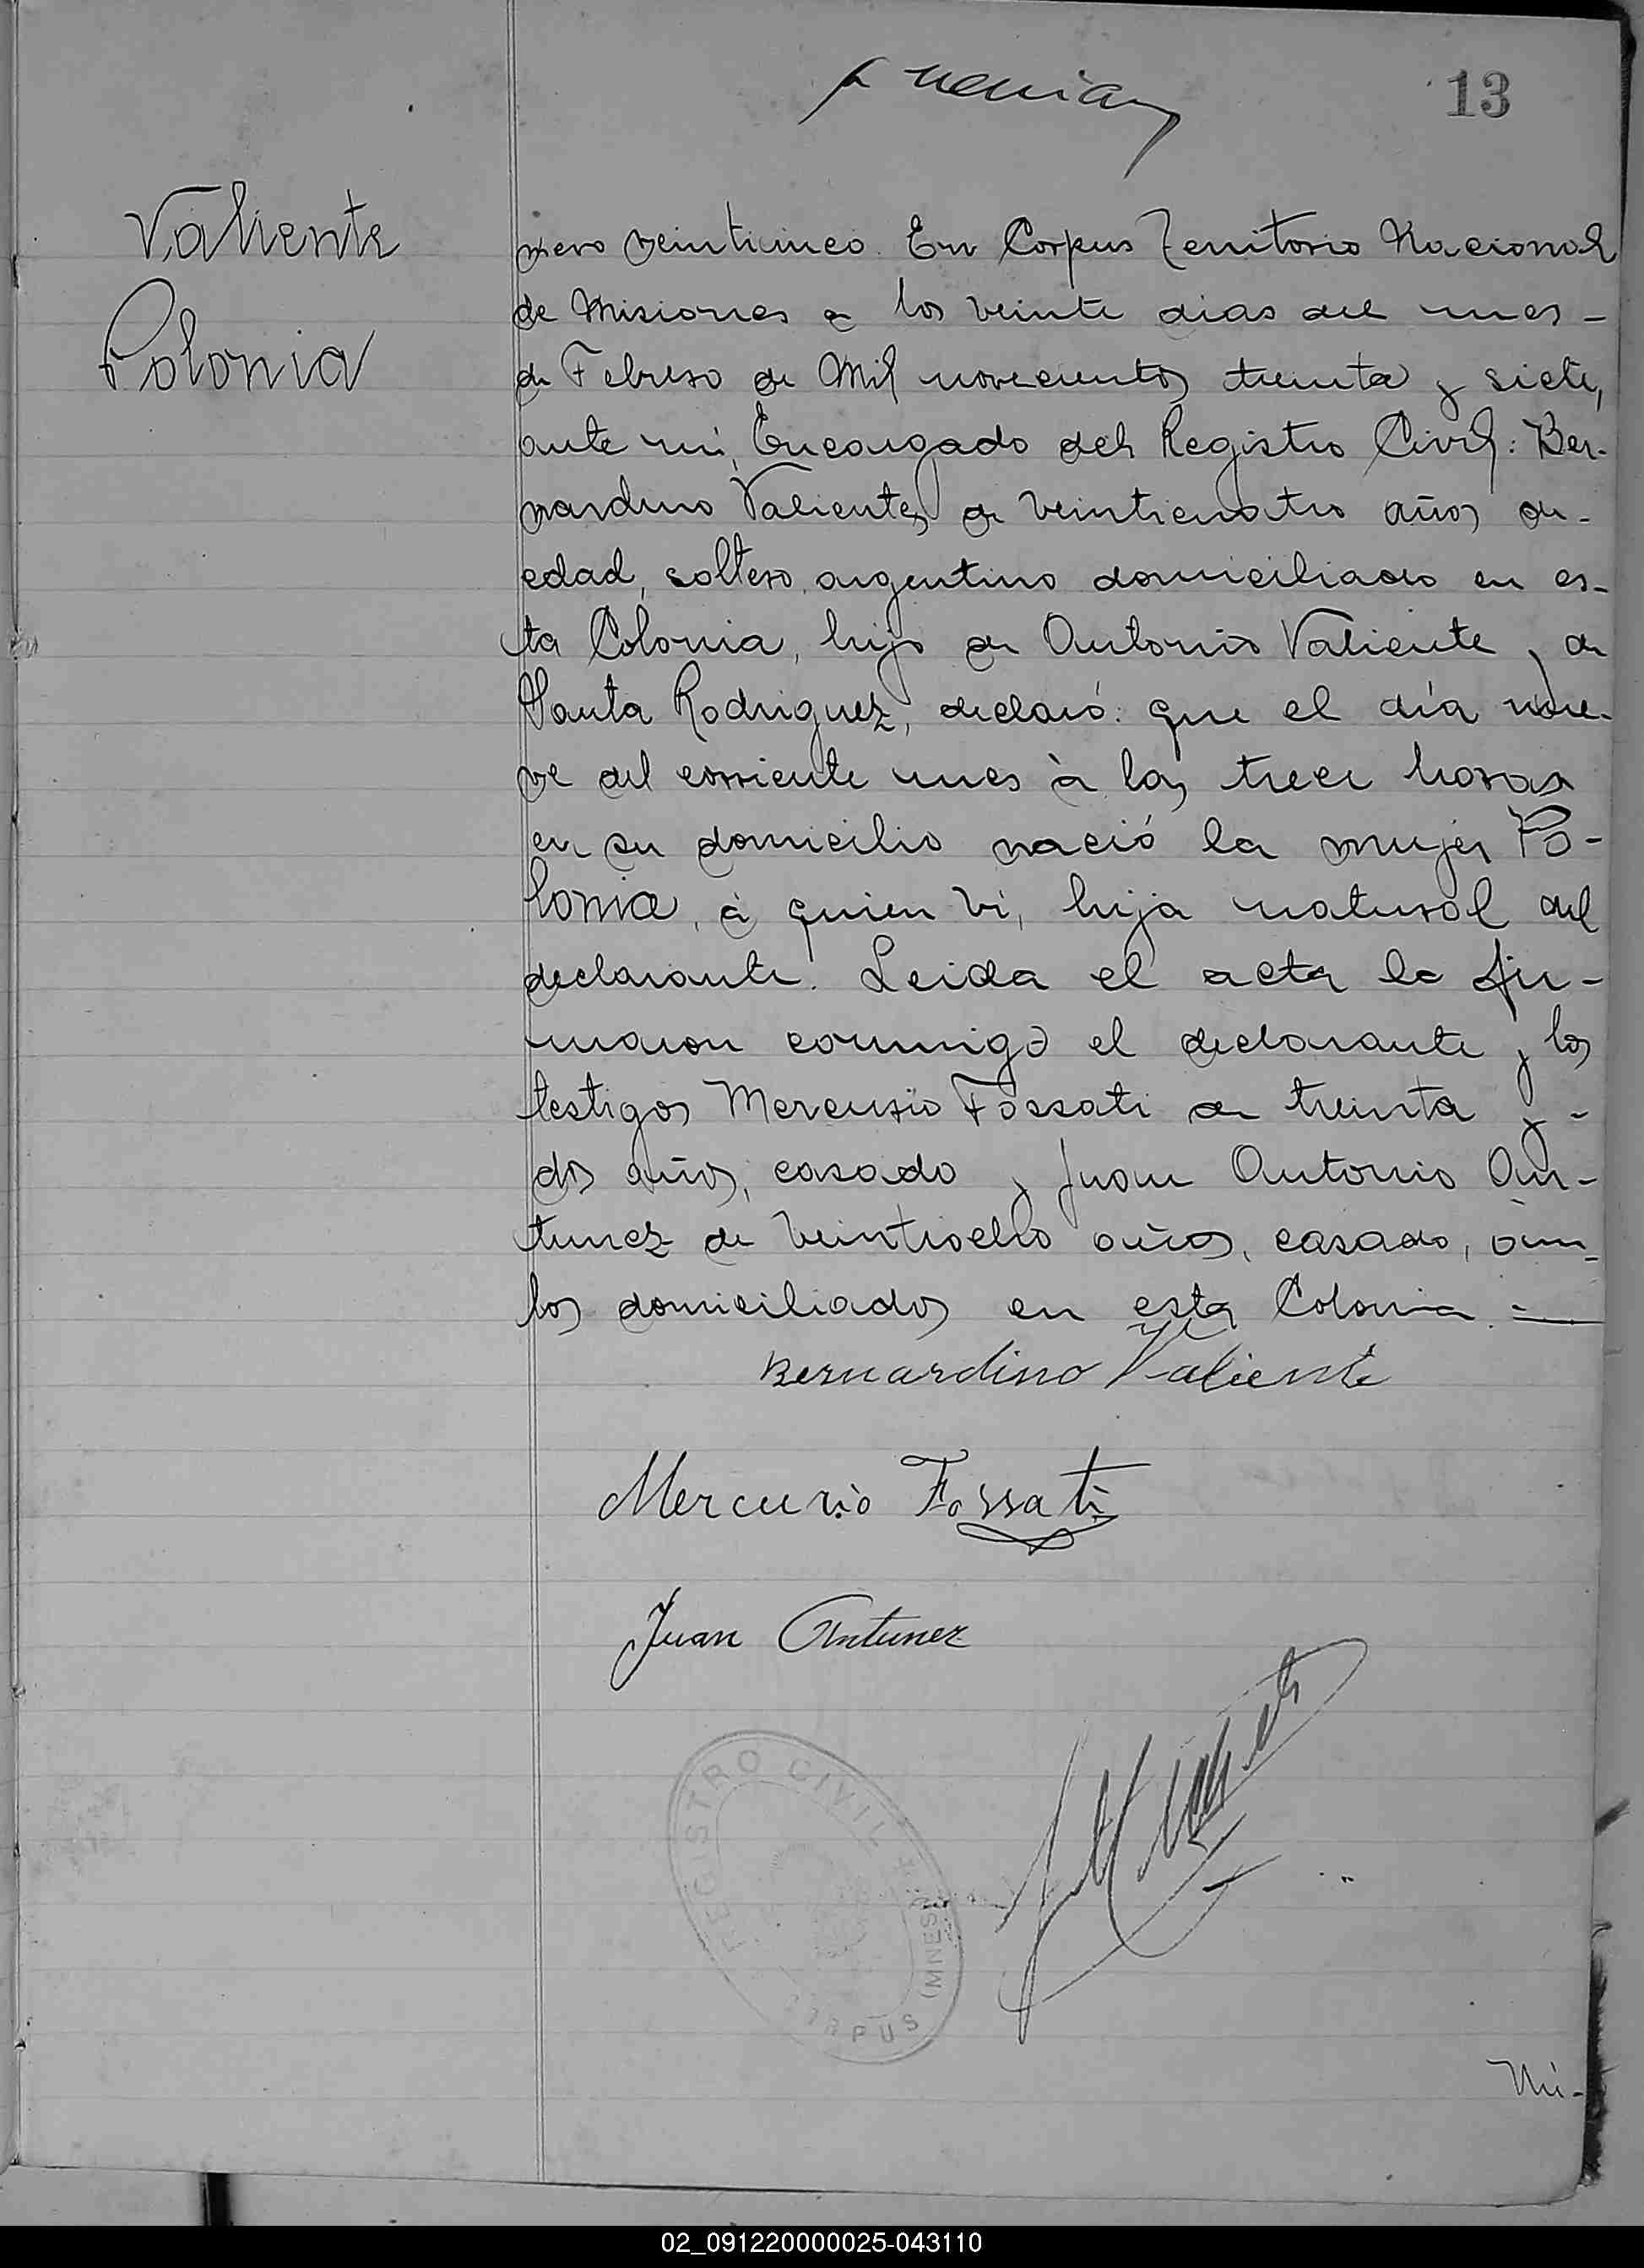 13
Valiente
Polonia
mero veinticinco. En Corpus Territorio Nacional
de Misiones a los veinte dias del mes -
de Febrero de Mil novecientos treinta y siete,
ante mi, Encargado del Registro Civil: Ber-
nardino Valiente, de veinticuatro años de -
edad, soltero, argentino domiciliado en es-
ta Colonia, hijo de Antonio Valiente y de
Santa Rodriguez, declaró: que el día nue-
ve del corriente mes à las trece horas
en su domicilio nació la mujer Po-
lonia, à quien vi, hija natural del
declarante. Leida el acta la fir-
maron conmigo el declarante y los
testigos Mercurio Fossati de treinta y -
dos años, casado y Juan Antonio An-
tunez de veintiocho años, casado, am-
bos domiciliados en esta Colonia. =
Bernardino Valiente
Mercurio Fossati
Juan Antunez
REGISTRO CIVIL
CORPUS (MNES)
Nú-
02_091220000025-043110